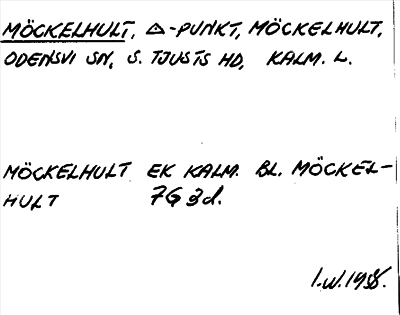 MÖCKELHULT, △-PUNKT, MÖCKELHULT,
ODENSVI SN, S. TJUSTS HD, KALM. L.
MÖCKELHULT EK KALM. BL. MÖCKEL-
HULT 7G 3d.
I.W.1958.